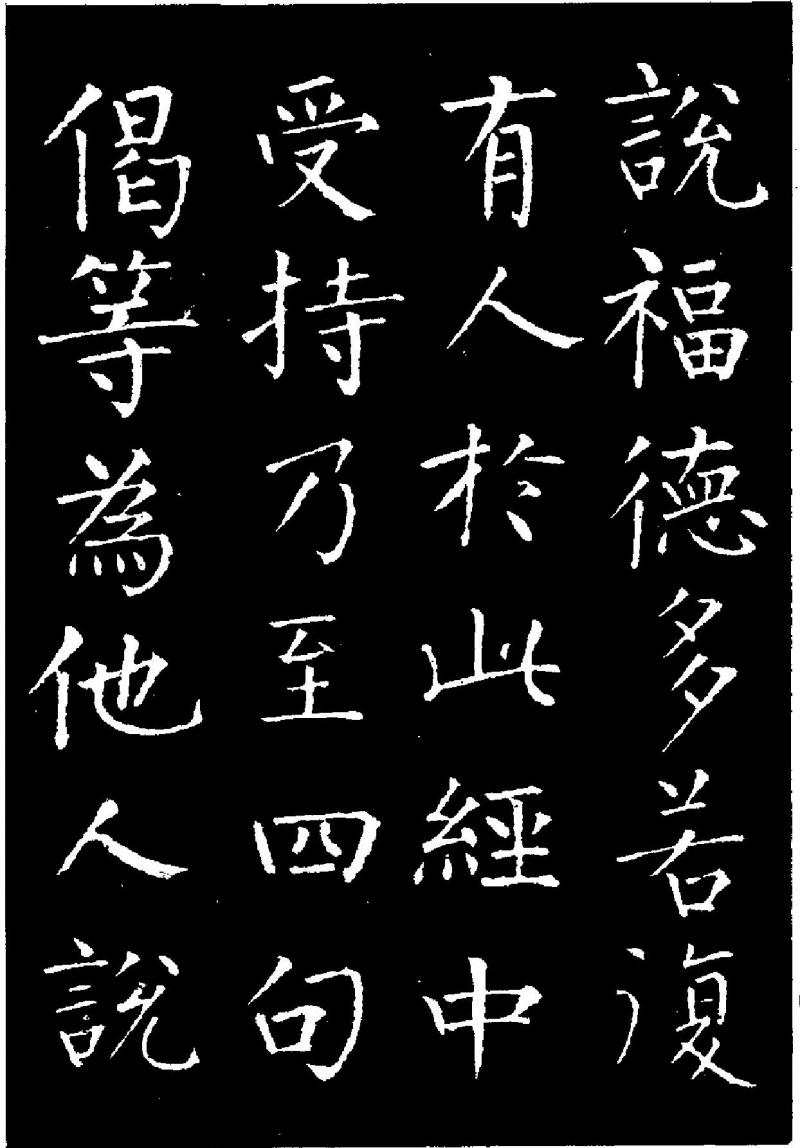 說福德多若復
有人於此經中
受持乃至四句
偈等為他人說